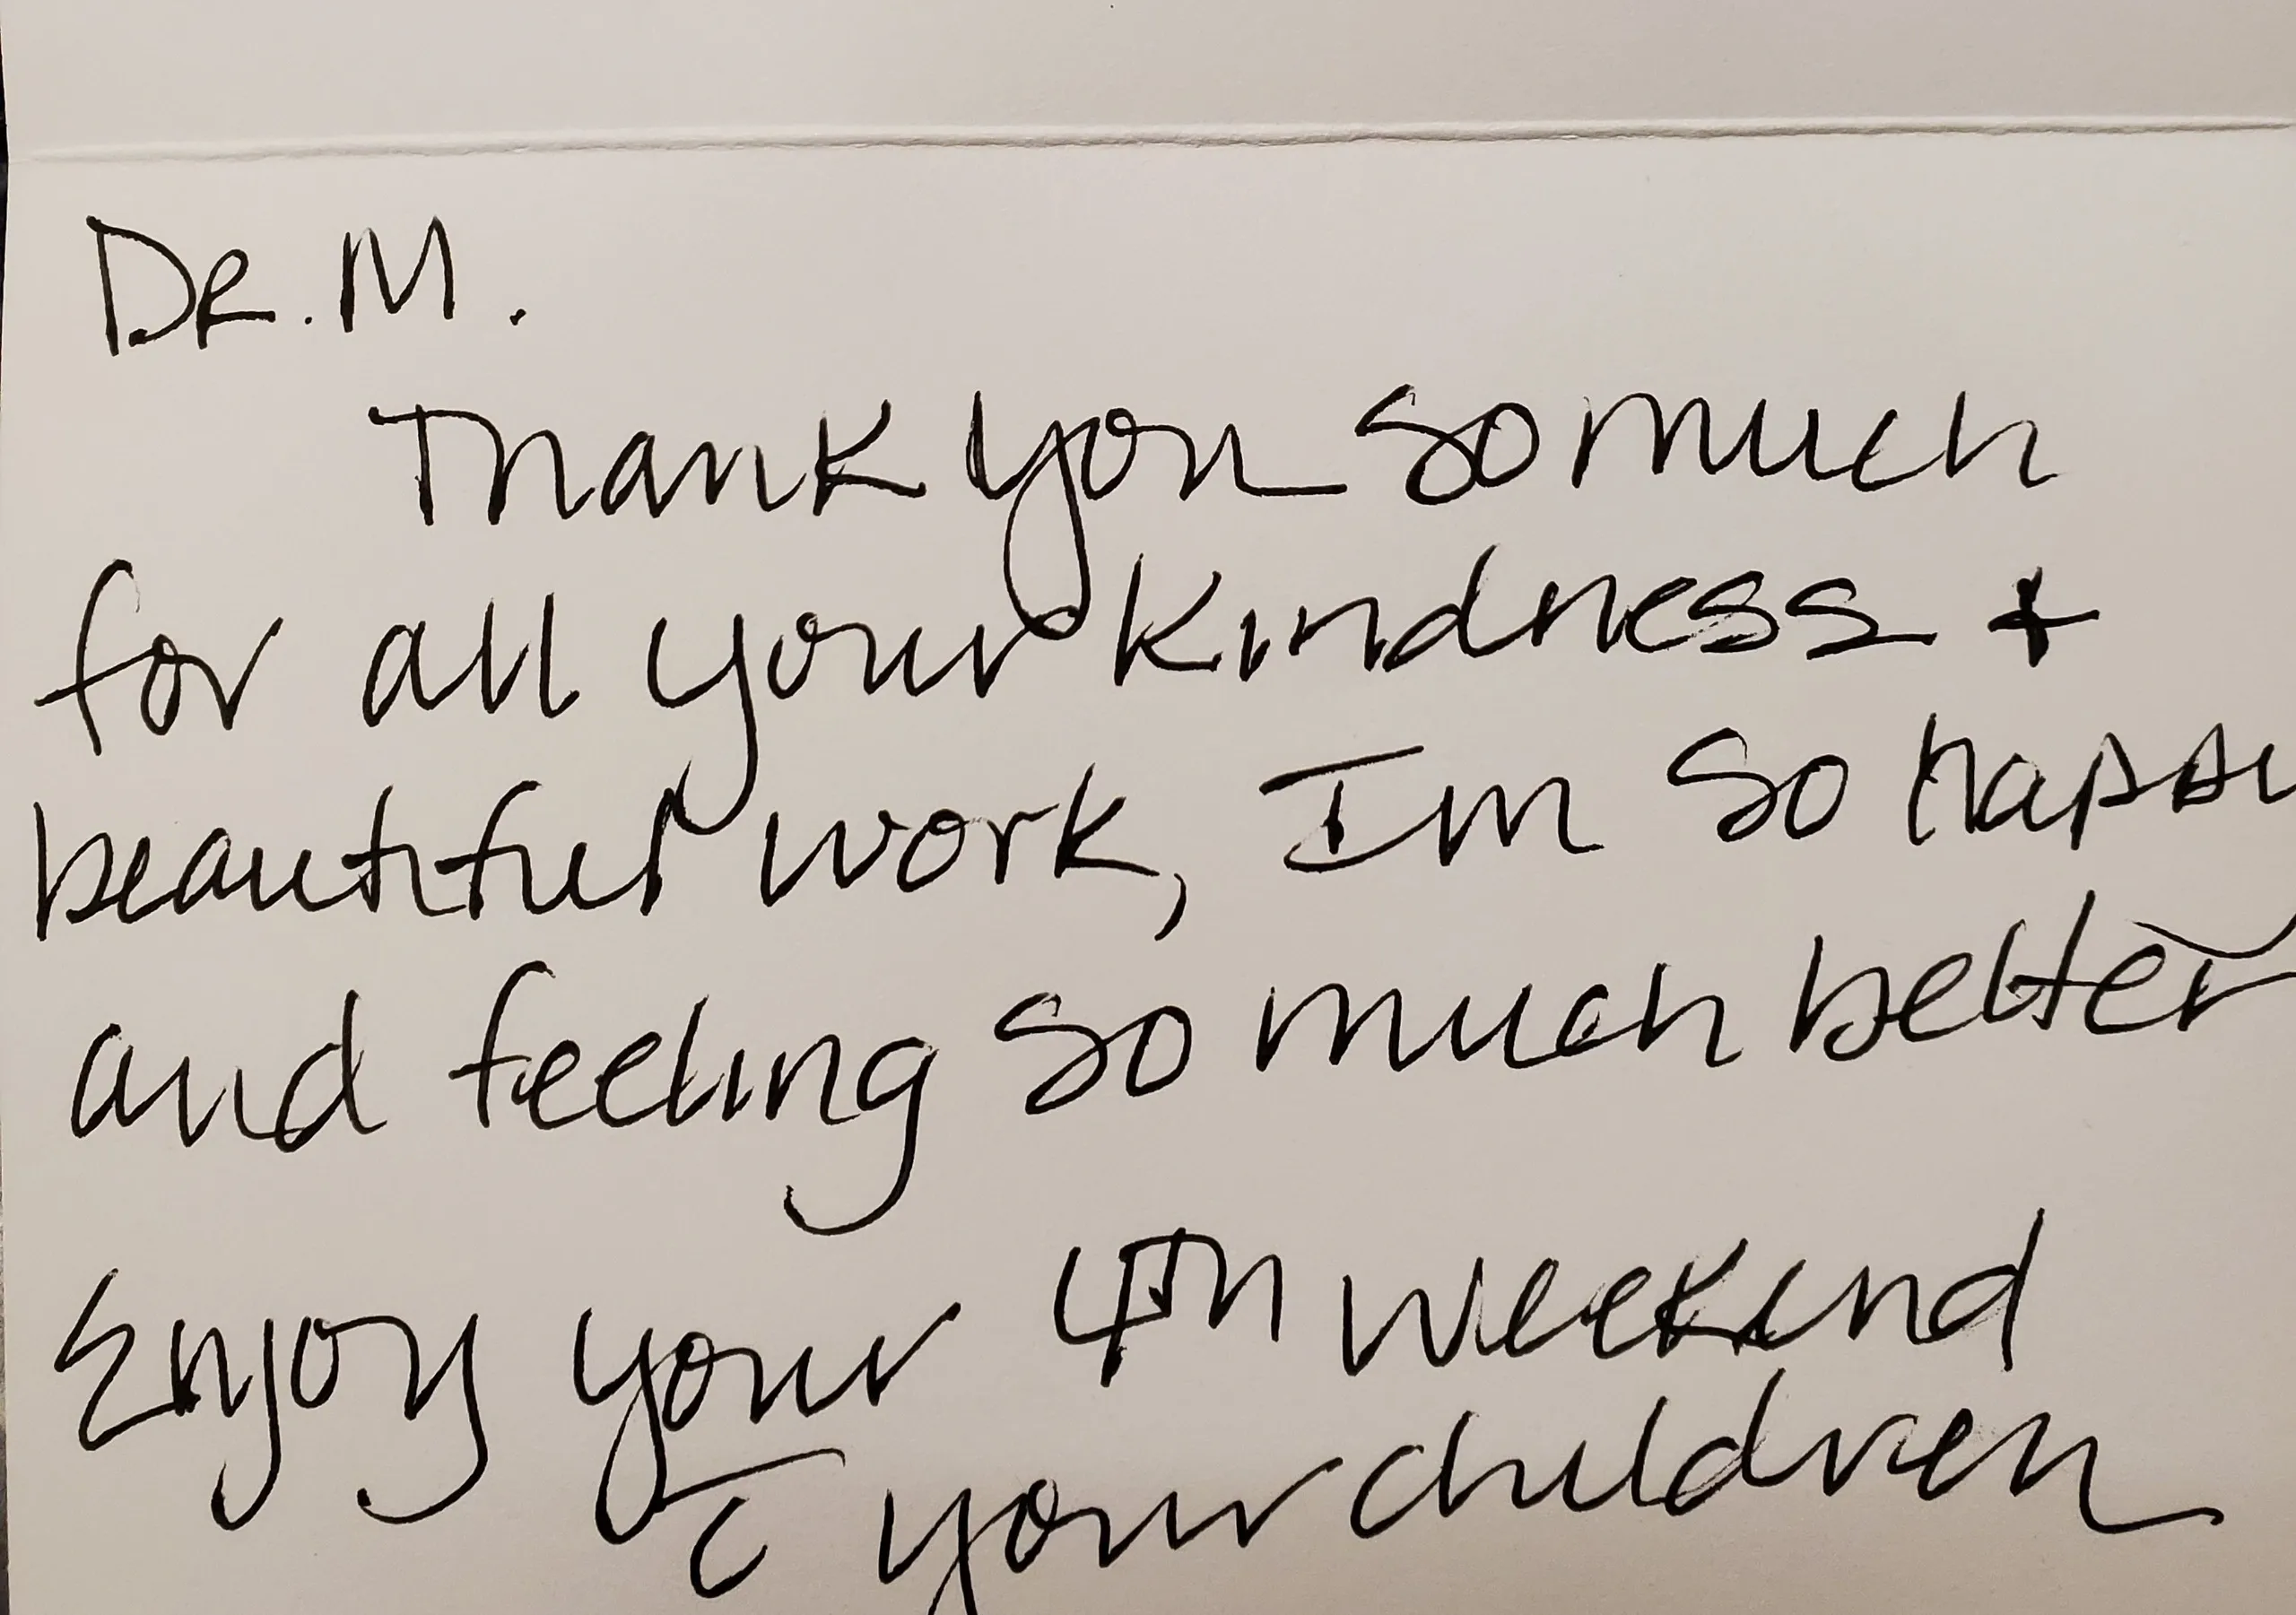 Dr. M.
Thank you so much
for all your kindness +
beautiful work, Im so happy
and feeling so much better
Enjoy your 4th weekend
c̄ your children